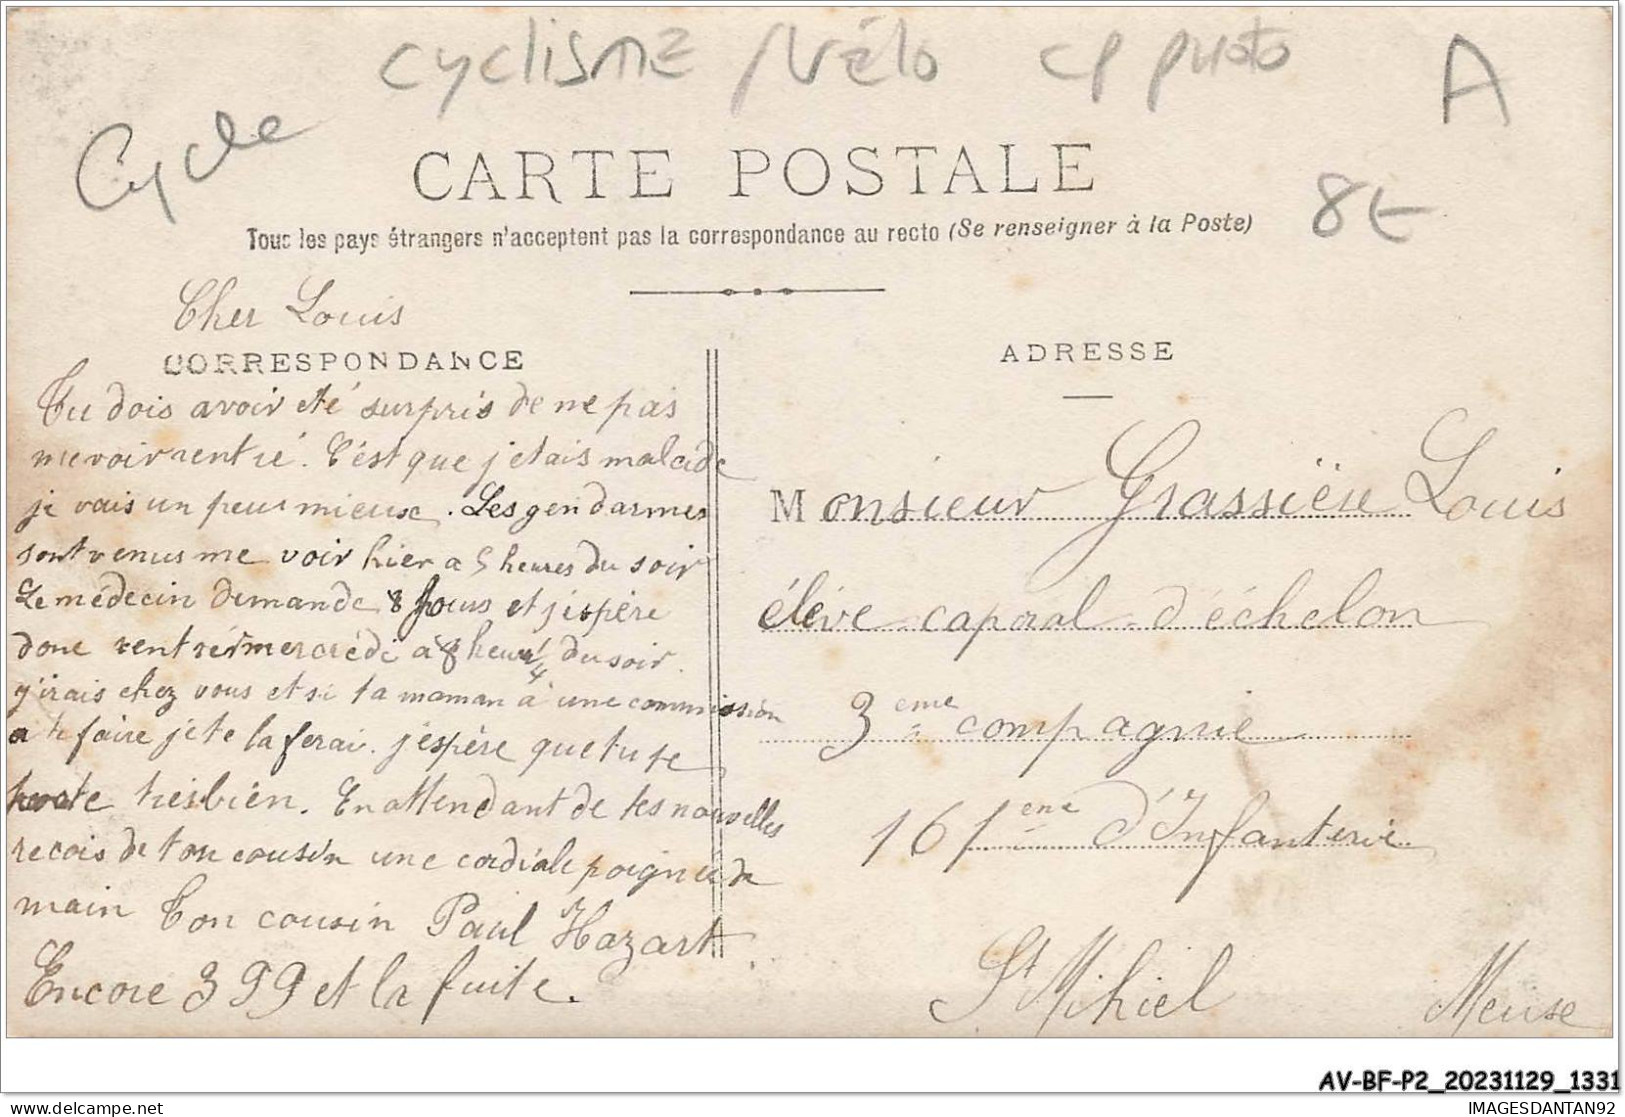 cyclisme / vélo cp photo A
Cycle
CARTE POSTALE
8€
Tous les pays étrangers n'acceptent pas la correspondance au recto (Se renseigner à la Poste)
Cher Louis
CORRESPONDANCE
Tu dois avoir été surpris de ne pas
me voir rentré. C'est que j'etais malade
je vais un peu mieux. Les gendarmes
sont venus me voir hier a 5 heures du soir
Le médecin demande 8 jours et j'éspère
donc rentrér mercrédi a 8 heur 1/4 du soir.
j'irais chez vous et si ta maman à une commission
a te faire je te la ferai. j'éspère que tu te
porte tres bien. En attendant de tes nouvelles
recois de ton cousin une cordiale poignée de
main Ton cousin Paul Hazart
Encore 399 et la fuite.
ADRESSE
Monsieur Grassière Louis
élève caporal d'échelon
3eme compagnie
161eme d'Infanterie
St Mihiel Meuse
AV-BF-P2_20231129_1331
IMAGESDANTAN92
delcampe.net